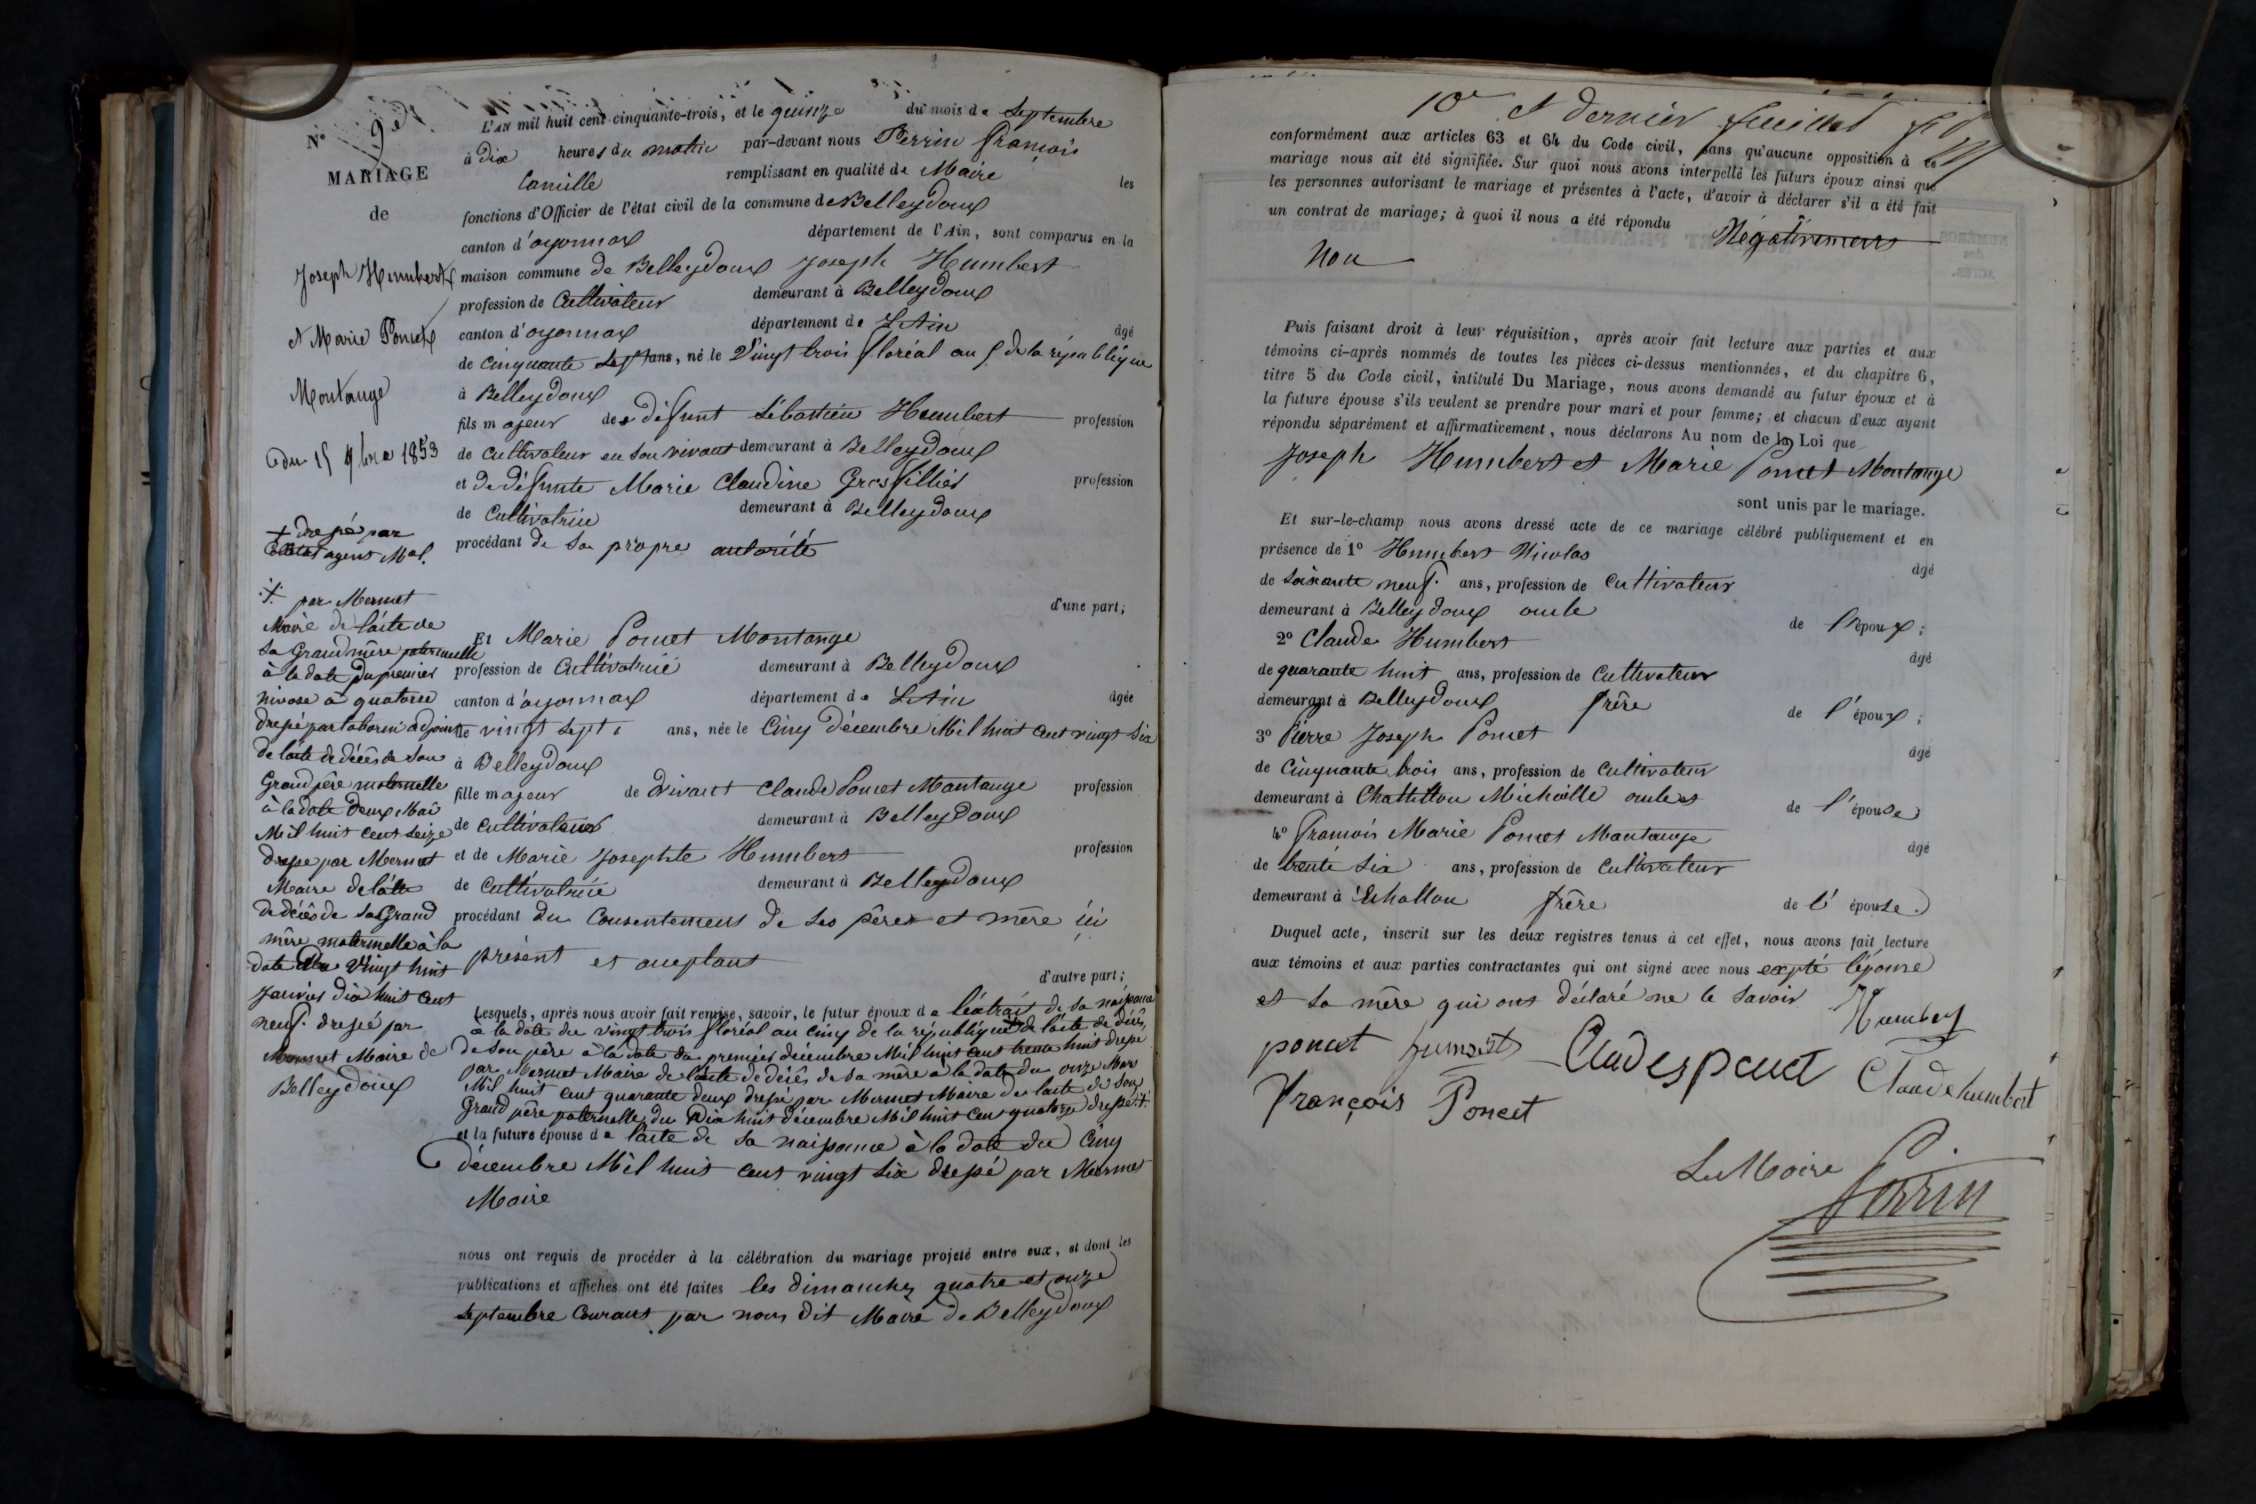 N° 9e
MARIAGE
de
Joseph Humbert
et Marie Poncet
Montange
du 15 7bre 1853
+ dressé par
agent Mal.
L'AN mil huit cent cinquante-trois, et le quinze du mois de Septembre
à dix heures du matin par-devant nous Perrin François
Camille remplissant en qualité de Maire les
fonctions d'Officier de l'état civil de la commune de Belleydoux
canton d'oyonnax département de l'Ain, sont comparus en la
maison commune de Belleydoux Joseph Humbert
profession de Cultivateur demeurant à Belleydoux
canton d'oyonnax département de L'Ain âgé
de cinquante sept ans, né le Vingt trois floréal an 5 de la république
à Belleydoux
fils majeur de défunt Sébastien Humbert profession
de cultivateur en son vivant demeurant à Belleydoux
et de défunte Marie Claudine Grosfilliex profession
de Cultivatrice demeurant à Belleydoux
procédant de sa propre autorité
d'une part;
Et Marie Poncet Montange
profession de Cultivatrice demeurant à Belleydoux
canton d'oyonnax département de L'Ain âgée
de vingt sept ans, née le Cinq décembre Mil huit cent vingt six
à Belleydoux
fille majeur de vivant Claude Poncet Montange profession
de cultivateur demeurant à Belleydoux
et de Marie Josephte Humbert profession
de Cultivatrice demeurant à Belleydoux
procédant du Consentement de ses père et mère ici
présent et acceptant
d'autre part;
Lesquels, après nous avoir fait remise, savoir, le futur époux de l'extrait de sa naissance
à la date du vingt trois floréal an cinq de la république + de l'acte de décès
de son père à la date du premier décembre Mil huit cent trente huit dressé
par Mermet Maire de l'acte de décès de sa mère à la date du onze Mars
Mil huit cent quarante deux dressé par Mermet Maire de l'acte de son
Grand père paternelle du Dix huit décembre Mil huit cent quatorze dressé
et la future épouse de l'acte de sa naissance à la date du Cinq
décembre Mil huit cent vingt six dressé par Mermet
Maire
nous ont requis de procéder à la célébration du mariage projeté entre eux, et dont les
publications et affiches ont été faites les dimanches quatre et onze
septembre Courant par nous dit Maire de Belleydoux
par Mermet
Maire de l'acte de
sa Grand mère paternelle
à la date du premier
nivose a quatorze
dressé par adjoint
de l'acte de décès de son
Grand père maternelle
à la date deux Mai
Mil huit cent seize
dressé par Mermet
Maire de l'acte
de décès de sa Grand
mère maternelle à la
date du Vingt huit
Janvier dix huit cent
neuf dressé par
Mermet Maire de
Belleydoux
10e et dernier feuillet
conformément aux articles 63 et 64 du Code civil, sans qu'aucune opposition à ce
mariage nous ait été signifiée. Sur quoi nous avons interpellé les futurs époux ainsi que
les personnes autorisant le mariage et présentes à l'acte, d'avoir à déclarer s'il a été fait
un contrat de mariage; à quoi il nous a été répondu Négativement
Non
Puis faisant droit à leur réquisition, après avoir fait lecture aux parties et aux
témoins ci-après nommés de toutes les pièces ci-dessus mentionnées, et du chapitre 6,
titre 5 du Code civil, intitulé Du Mariage, nous avons demandé au futur époux et à
la future épouse s'ils veulent se prendre pour mari et pour femme; et chacun d'eux ayant
répondu séparément et affirmativement, nous déclarons Au nom de la Loi que
Joseph Humbert et Marie Poncet Montange
sont unis par le mariage.
Et sur-le-champ nous avons dressé acte de ce mariage célébré publiquement et en
présence de 1° Humbert Nicolas âgé
de soixante neuf ans, profession de Cultivateur
demeurant à Belleydoux oncle de l'époux;
2° Claude Humbert âgé
de quarante huit ans, profession de Cultivateur
demeurant à Belleydoux frère de l'époux;
3° Pierre Joseph Poncet âgé
de Cinquante trois ans, profession de Cultivateur
demeurant à Chattillon Michaille oncle de l'épouse
4° François Marie Poncet Montange âgé
de trente six ans, profession de Cultivateur
demeurant à Echallon frère de l'épouse.
Duquel acte, inscrit sur les deux registres tenus à cet effet, nous avons fait lecture
aux témoins et aux parties contractantes qui ont signé avec nous excepté l'épouse
et sa mère qui ont déclaré ne le savoir
Humbert
poncet Claudesponcet
Claude humbert
françois Poncet
Le Maire
Perrin